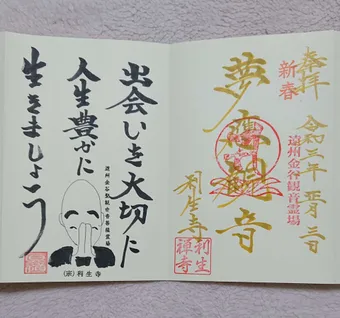 奉拝
新春
夢應観音
遠州金谷観音霊場
令和三年正月三日
利生寺
利生
禅寺
出会いを大切に
人生豊かに
生きましょう
(宗)利生寺